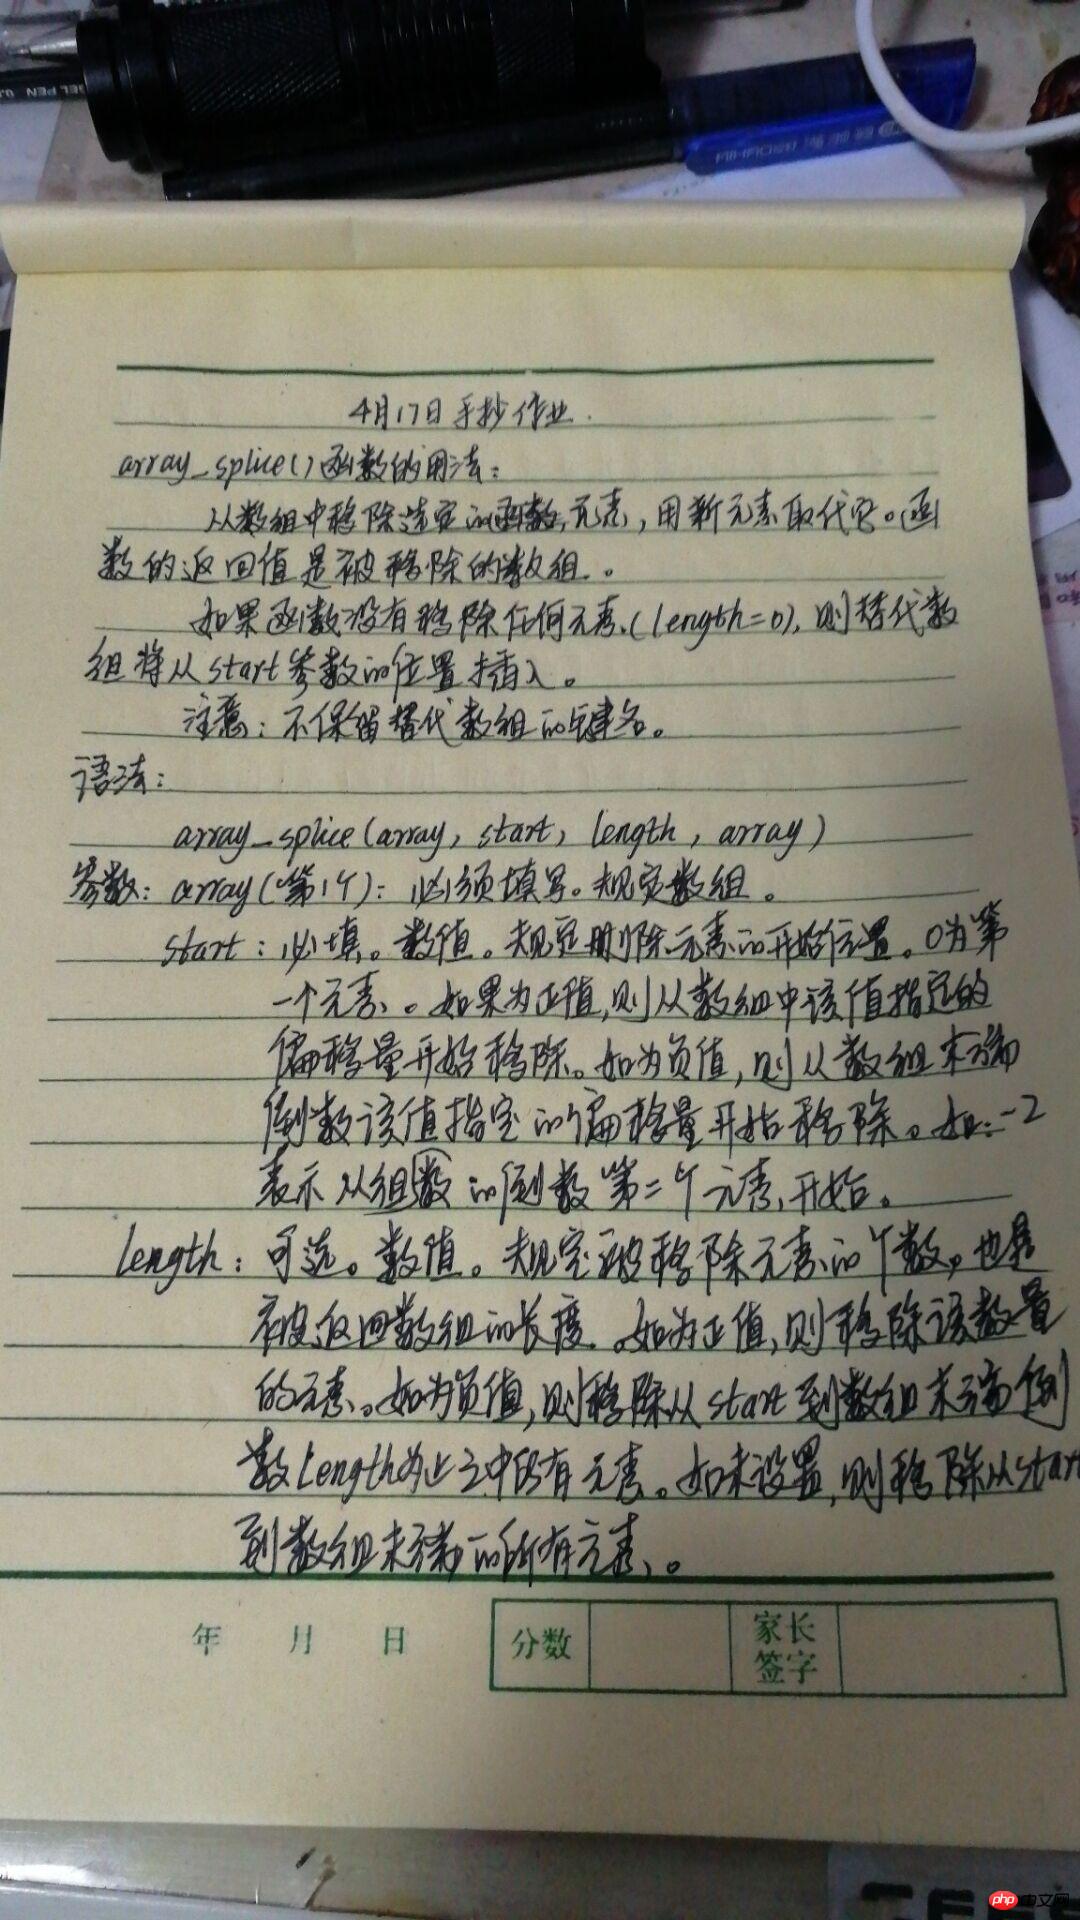 SEL PEN 0.
4月17日手抄作业.
array_splice()函数的用法:
从数组中移除选定的元素,用新元素取代它。函
数的返回值是被移除的数组。
如果函数没有移除任何元素(length=0),则替代数
组将从start参数的位置插入。
注意:不保留替代数组的键名。
语法:
array_splice(array, start, length, array)
参数: array(第1个): 必须填写。规定数组。
start: 必填。数值。规定删除元素的开始位置。0为第
一个元素。如果为正值,则从数组中该值指定的
偏移量开始移除。如为负值,则从数组末端
倒数该值指定的偏移量开始移除。如:-2
表示从组数的倒数第二个元素开始。
length: 可选。数值。规定被移除元素的个数,也是
被返回数组的长度。如为正值,则移除该数量
的元素。如为负值,则移除从start到数组末端倒
数length为止之中所有元素。如未设置,则移除从start
到数组末端的所有元素。
年 月 日 分数 家长签字
php中文网